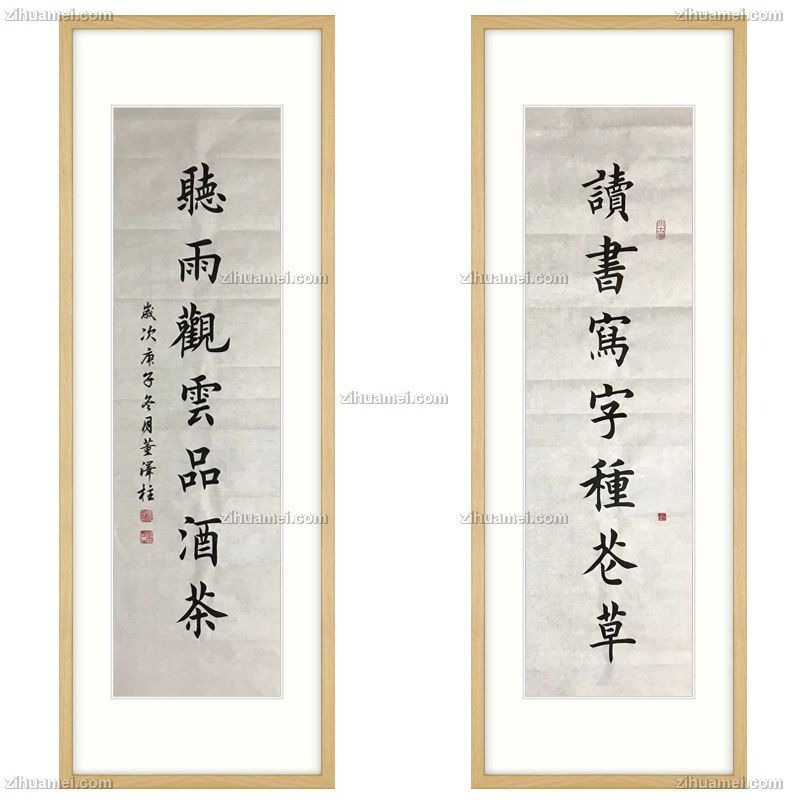 讀書寫字種花草
聽雨觀雲品酒茶
歲次庚子冬月董澤柱
zihuamei.com
zihuamei.com
zihuamei.com
zihuamei.com
zihuamei.com
zihuamei.com
zihuamei.com
zihuamei.com
zihuamei.com